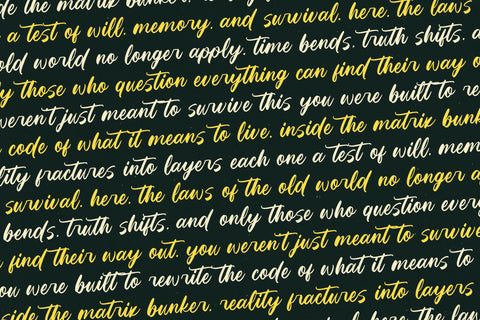 de the matrix bunker. reality
a test of will. memory. and survival. here. the laws
old world no longer apply. time bends. truth shifts. a
ly those who question everything can find their way o
weren't just meant to survive this you were built to re
code of what it means to live. inside the matrix bunk
lity fractures into layers each one a test of will. mem
survival. here. the laws of the old world no longer a
bends. truth shifts. and only those who question every
find their way out. you weren't just meant to survive
ou were built to rewrite the code of what it means to
side the matrix bunker. reality fractures into layers
here. the law